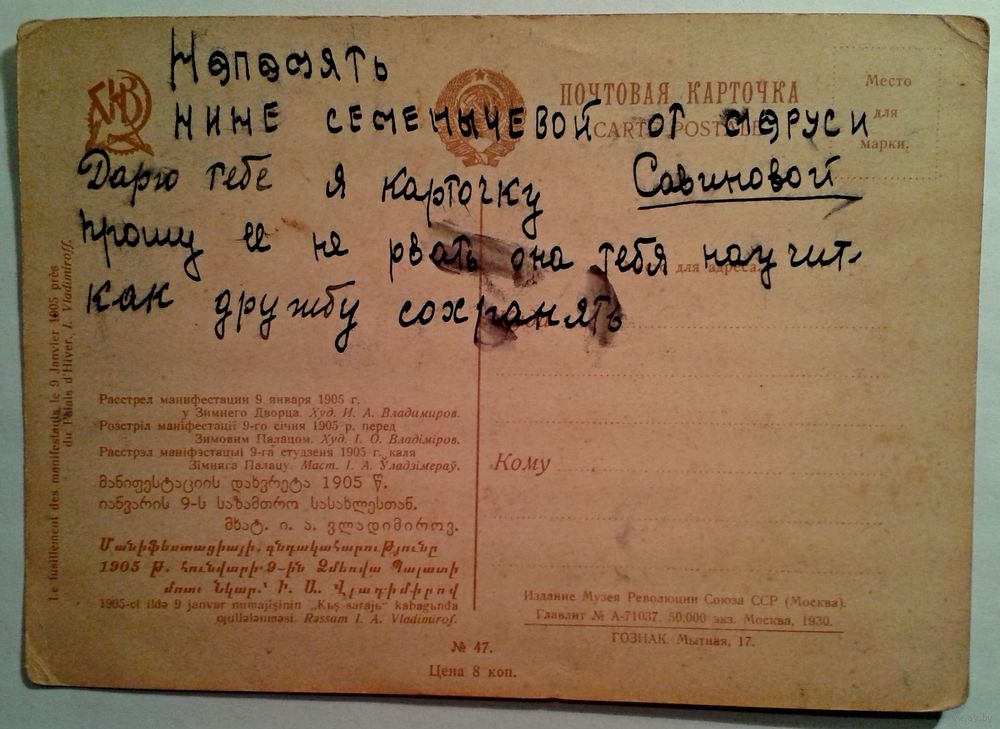 Напасять
НИНЕ СЕМЕНЫЧЕВОЙ ОТ МАРУСИ
Дарю тебе я карточку Савиновой
прошу ее не рвать она тебя научит-
как дружбу сохранять
ПОЧТОВАЯ КАРТОЧКА
CARTE POSTALE
Место
для
марки.
для адреса
Кому
Le fusillement des manifestants le 9 Janvier 1905 près
du Palais d'Hiver. I. Vladimiroff.
Расстрел манифестации 9 января 1905 г.
у Зимнего Дворца. Худ. И. А. Владимиров.
Розстріл маніфестації 9-го січня 1905 р. перед
Зимовим Палацом. Худ. І. О. Владіміров.
Расстрэл маніфэстацыі 9-га студзеня 1905 г. каля
Зімняга Палацу. Маст. І. А. Ўладзімераў.
მანიფესტაციის დახვრეტა 1905 წ.
იანვარის 9-ს საზამთრო სასახლესთან.
მხატ. ი. ა. ვლადიმიროვ.
Մանիֆեստացիայի գնդակահարությունը
1905 թ. հունվարի 9-ին Ձմեռվա Պալատի
մոտ։ Նկար.՝ Ի. Ա. Վլադիմիրով
1905-ci ildə 9 janvar numajişinin „Kьş-sarajь" kabagьnda
gjullələnməsi. Rəssam I. A. Vladimirof.
№ 47.
Цена 8 коп.
Издание Музея Революции Союза ССР (Москва).
Главлит № А-71037. 50.000 экз. Москва, 1930.
ГОЗНАК. Мытная, 17.